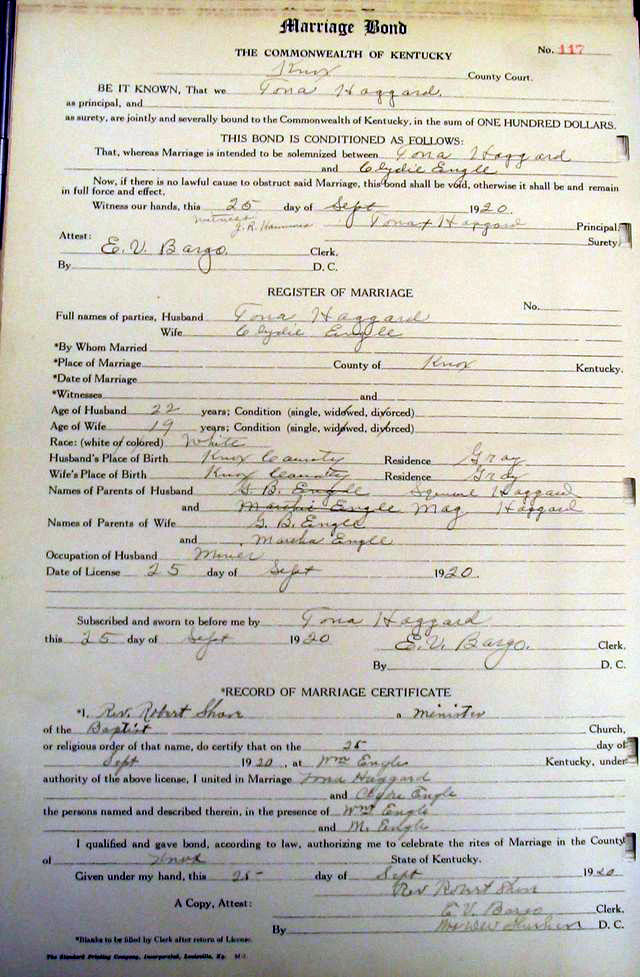 Marriage Bond
No. 117
THE COMMONWEALTH OF KENTUCKY
Knox County Court.
BE IT KNOWN, That we Tona Haggard.
as principal, and
as surety, are jointly and severally bound to the Commonwealth of Kentucky, in the sum of ONE HUNDRED DOLLARS.
THIS BOND IS CONDITIONED AS FOLLOWS:
That, whereas Marriage is intended to be solemnized between Tona Haggard
and Clydie Engle
Now, if there is no lawful cause to obstruct said Marriage, this bond shall be void, otherwise it shall be and remain
in full force and effect.
Witness our hands, this 25 day of Sept 1920.
witness
J. R. Hammons Tona x Haggard Principal
Surety
Attest: E. V. Bargo. Clerk.
By D. C.
REGISTER OF MARRIAGE
No.
Full names of parties, Husband Tona Haggard
Wife Clydie Engle
*By Whom Married
*Place of Marriage County of Knox Kentucky.
*Date of Marriage
*Witnesses and
Age of Husband 22 years; Condition (single, widowed, divorced)
Age of Wife 19 years; Condition (single, widowed, divorced)
Race: (white or colored) White
Husband's Place of Birth Knox County Residence Gray
Wife's Place of Birth Knox County Residence Gray
Names of Parents of Husband G. B. Engle Squire Haggard
and Engle Mag Haggard
Names of Parents of Wife G. B. Engle
and Marsha Engle
Occupation of Husband Miner
Date of License 25 day of Sept 1920.
Subscribed and sworn to before me by Tona Haggard
this 25 day of Sept 1920 E. V. Bargo. Clerk.
By D. C.
*RECORD OF MARRIAGE CERTIFICATE
*I, Rev. Robert a minister
of the Baptist Church,
or religious order of that name, do certify that on the 25 day of
Sept 1920, at Wm Engle Kentucky, under
authority of the above license, I united in Marriage Tona Haggard
and Engle
the persons named and described therein, in the presence of Wm Engle
and M. Engle
I qualified and gave bond, according to law, authorizing me to celebrate the rites of Marriage in the County
of Knox State of Kentucky.
Given under my hand, this 25 day of Sept 1920
Rev Robert
A Copy, Attest: E V. Bargo Clerk.
By D. C.
*Blanks to be filled by Clerk after return of License.
The Standard Printing Company, Incorporated, Louisville, Ky.